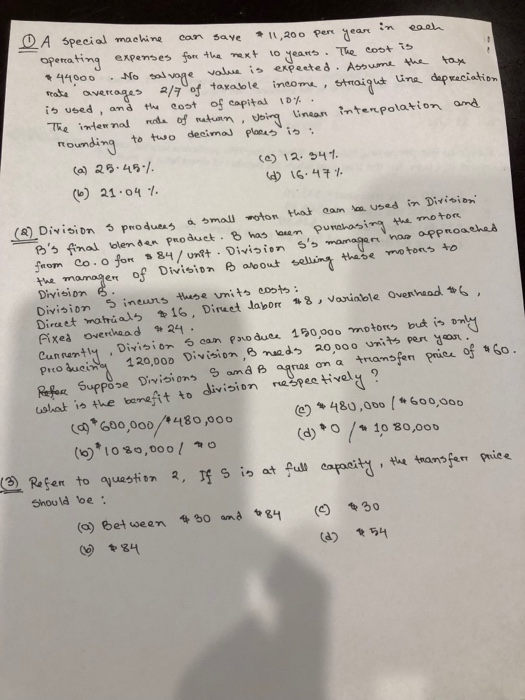 ① A special machine can save $11,200 per year in each
operating expenses for the next 10 years. The cost is
$44000. No salvage value is expected. Assume the tax
rate averages 2/7 of taxable income, straight line depreciation
is used, and the cost of capital 10%.
The internal rate of return, using linear interpolation and
rounding to two decimal places is :
(a) 25.45%
(c) 12.34%
(b) 21.04%
(d) 16.47%
(2) Division S produces a small motor that can be used in Division
B's final blender product. B has been purchasing the motor
from Co. O for $84/unit. Division S's manager has approached
the manager of Division B about selling these motors to
Division B.
Division S incurs these units costs:
Direct matrials $16, Direct labor $8, variable Overhead $6,
Fixed overhead $24.
Currently, Division S can produce 150,000 motors but is only
producing 120,000 Division, B needs 20,000 units per year.
Suppose Divisions S and B agree on a transfer price of $60.
what is the benefit to division respectively?
(a) $600,000/$480,000
(c) $480,000/$600,000
(b) $1080,000/$0
(d) $0/$1080,000
(3) Refer to question 2, If S is at full capacity, the transfer price
should be :
(a) Between $30 and $84
(c) $30
(b) $84
(d) $54